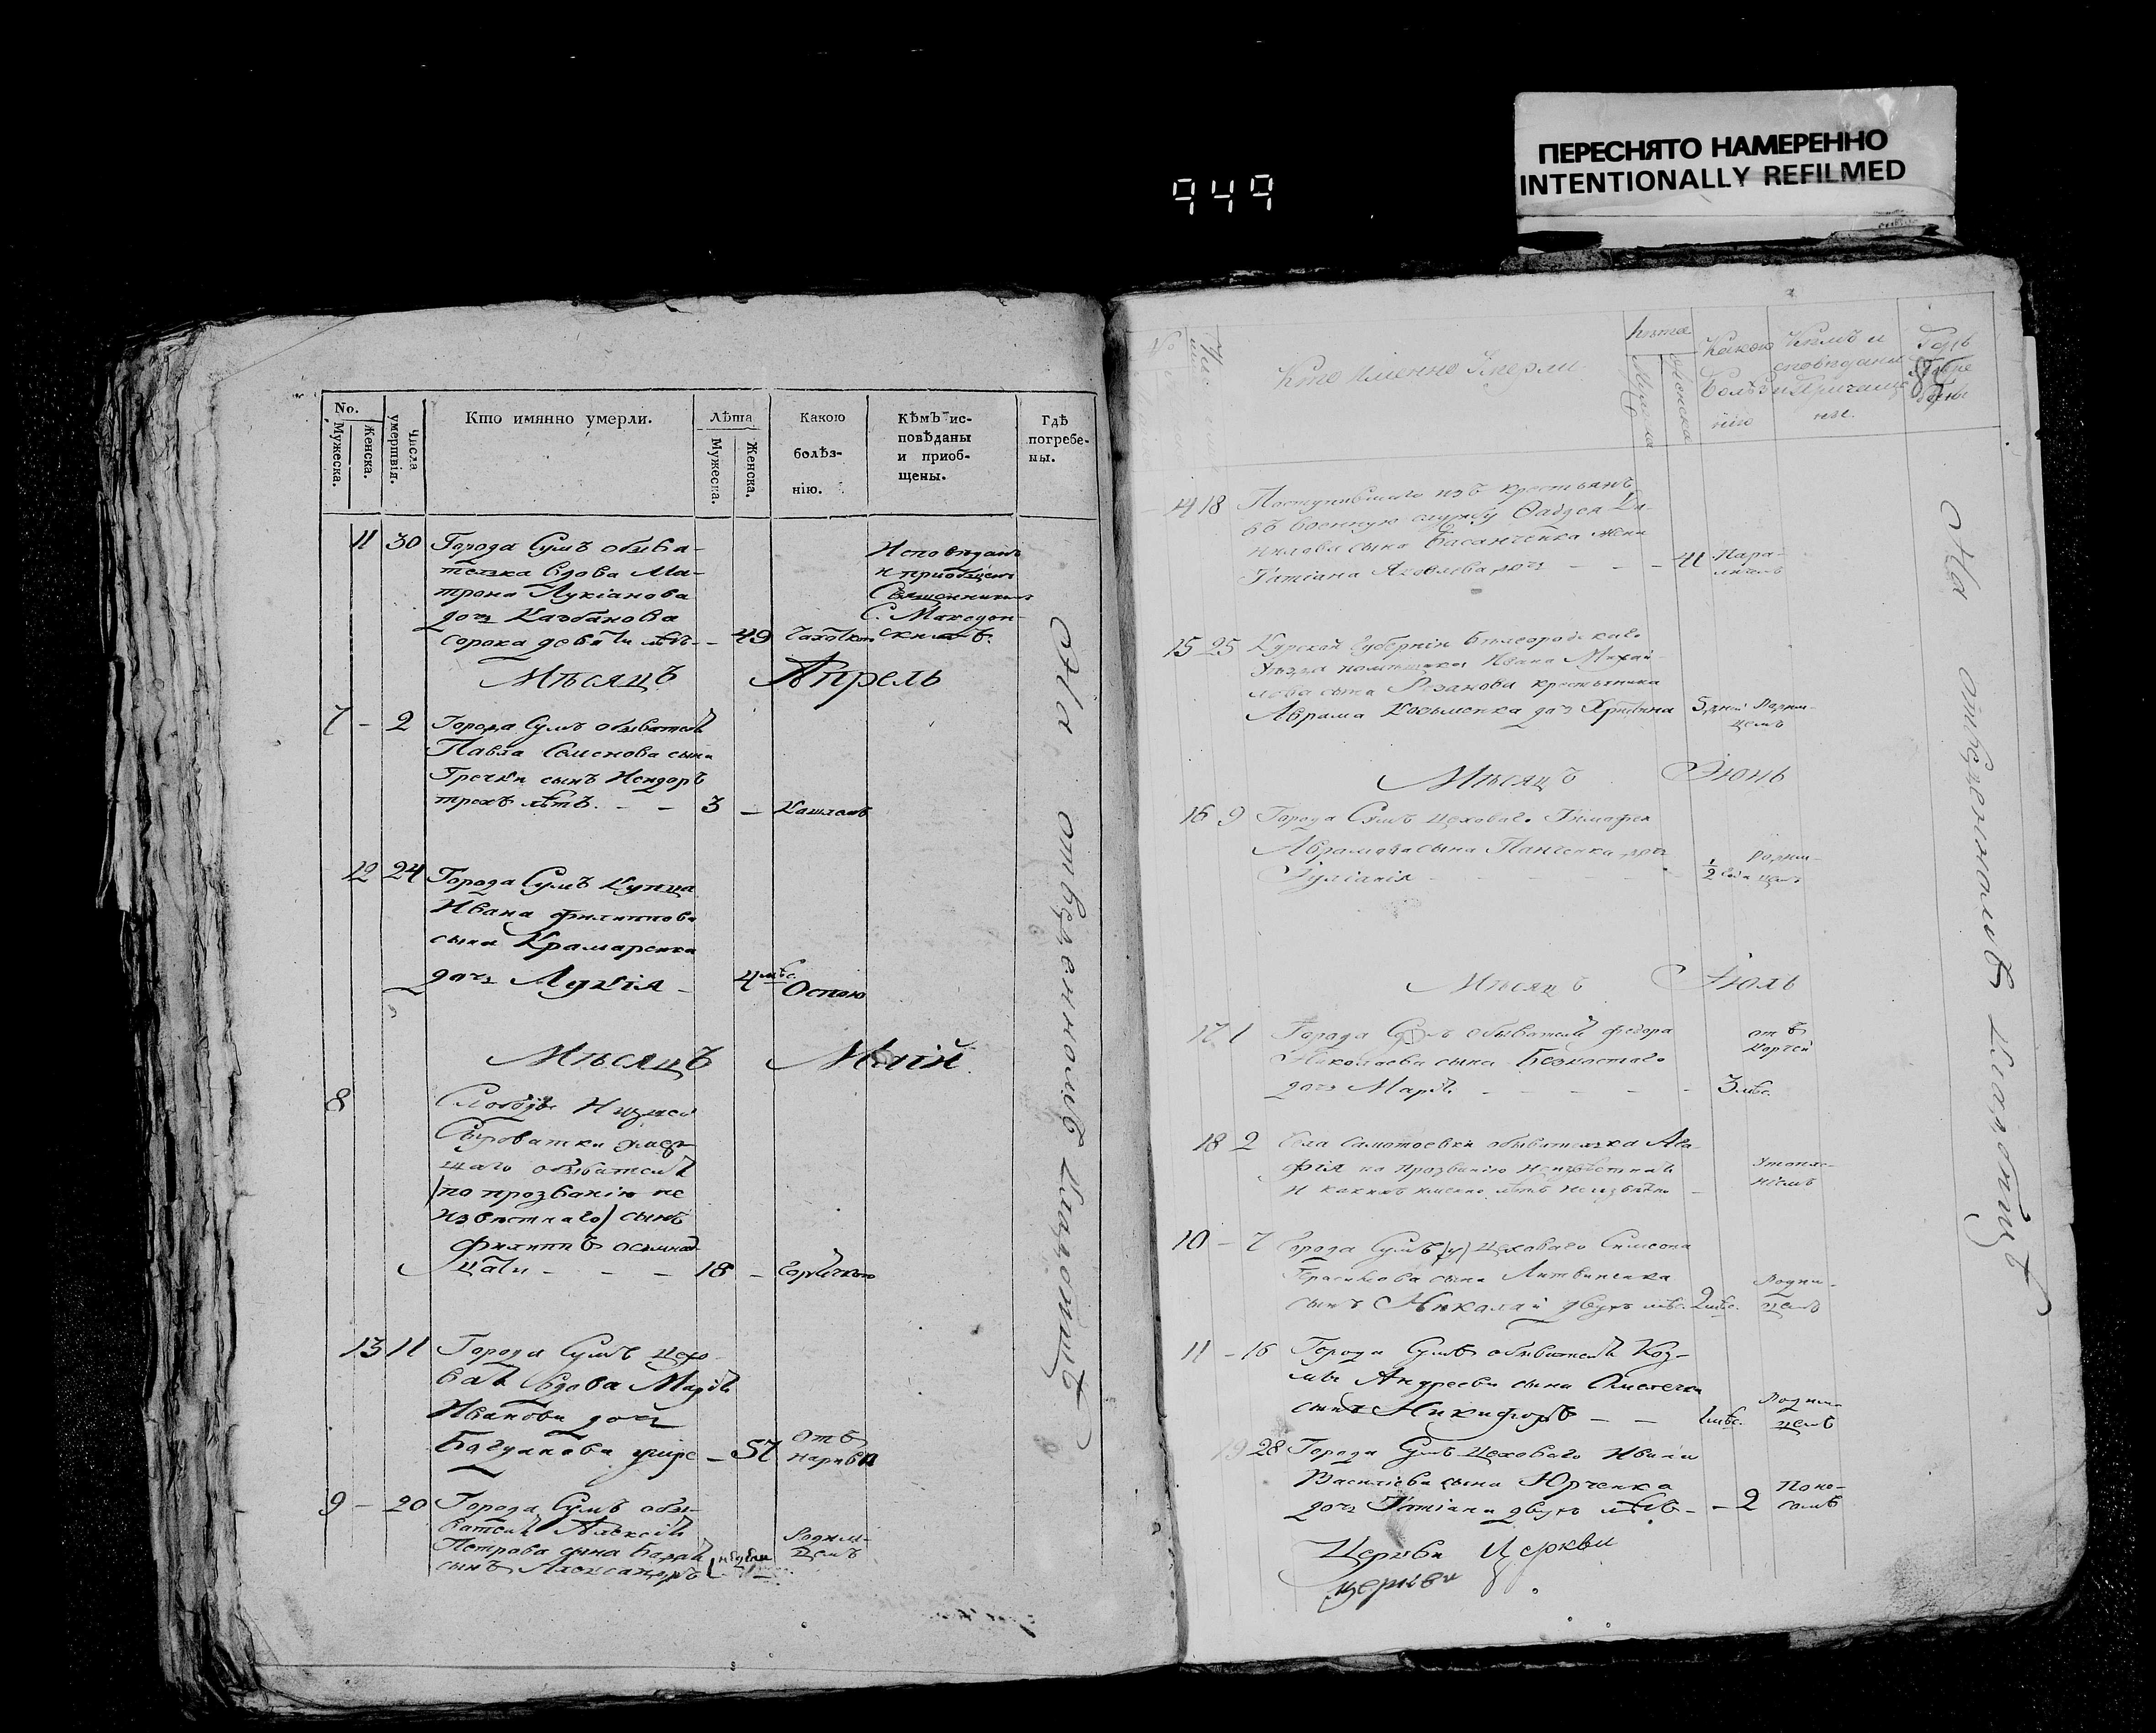 ПЕРЕСНЯТО НАМЕРЕННО
INTENTIONALLY REFILMED
949
No.
Мужеска.
Женска.
Числа умертвія.
Кто имянно умерли.
Лѣта
Мужеска.
Женска.
Какою
болѣз-
нію.
Кѣмъ ис-
повѣданы
и приоб-
щены.
Гдѣ
погребе-
ны.
11 30 Города Сумъ обыва-
телка вдова Ма-
трона Лукіанова
дочь
сорока девяти лѣтъ - 49
Исповѣдан
и приобщен
Священником
С. Македон-
скимъ.
Мѣсяцъ Апрель
7 - 2 Города Сумъ обывателя
Павла Семенова сына
Гречки сынъ Исидоръ
трехъ лѣтъ. - - 3 - Кашлемъ
12 24 Города Сумъ Купца
Ивана Филиппова
сына Крамаренка
дочь Лукія - 4 мѣс. Оспою
Мѣсяцъ Маій
8 Слободы Нижней
Сыроватки
обывателя
/по прозванію не
извѣстнаго/ сынъ
Филиппъ осьмнад-
цати - - - 18 - Горячкою
13 11 Города Сумъ цехо-
вая вдова Марія
Иванова дочь
- 57 отъ
9 - 20 Города Сумъ обы-
вателя Алексія
Петрова сына
сынъ Александръ
Родим-
цемъ
На отведенномъ кладбищѣ
Кто именно Умерли
Лѣта
Мужеска
Женска
Какою
Болѣз
нію
Кѣмъ и
сповѣданы
и Причаще
ны.
Гдѣ
Погре
бены
8
14 18 Поступившаго изъ крестьянъ
въ военную службу
сына Басанченка жена
Татіана Яковлева дочь - - - 41 Пара-
личемъ
15 25 Курской Губерніи Бѣлгородскаго
Уѣзда помѣщика Ивана Михай-
лова сына крестьянина
Аврама дочь 5 дней Родим-
цемъ
Мѣсяцъ Іюнь
16 9 Города Сумъ цеховаго Тимофея
Аврамова сына Панченка дочь
Іуліанія - - - 1/2 года Родим-
цемъ
Мѣсяцъ Іюль
17 1 Города Сумъ обывателя Федора
Николаева сына Безкостаго
дочь Марія - - - - - 3 мѣс.
отъ
Корчей
18 2 Села Самотоевки обывателка Ага-
фія по прозванію неизвѣстная
и какихъ именно лѣтъ неизвѣстно - Утопле-
ніемъ
10 - 7 Города Сумъ цеховаго Симеона
Герасимова сына Литвиненка
сынъ Николай двухъ мѣс. 2 мѣс. Родим-
цемъ
11 - 16 Города Сумъ обывателя Коз-
мы Андреева сына
сынъ Никифоръ - - 1 мѣс. Родим-
цемъ
19 28 Города Сумъ цеховаго Ивана
Василіева сына Юрченка
дочь Татіана двухъ лѣтъ - - 2 Поно-
сомъ
Церкви Церкви
церкви
На отведенномъ кладбищѣ